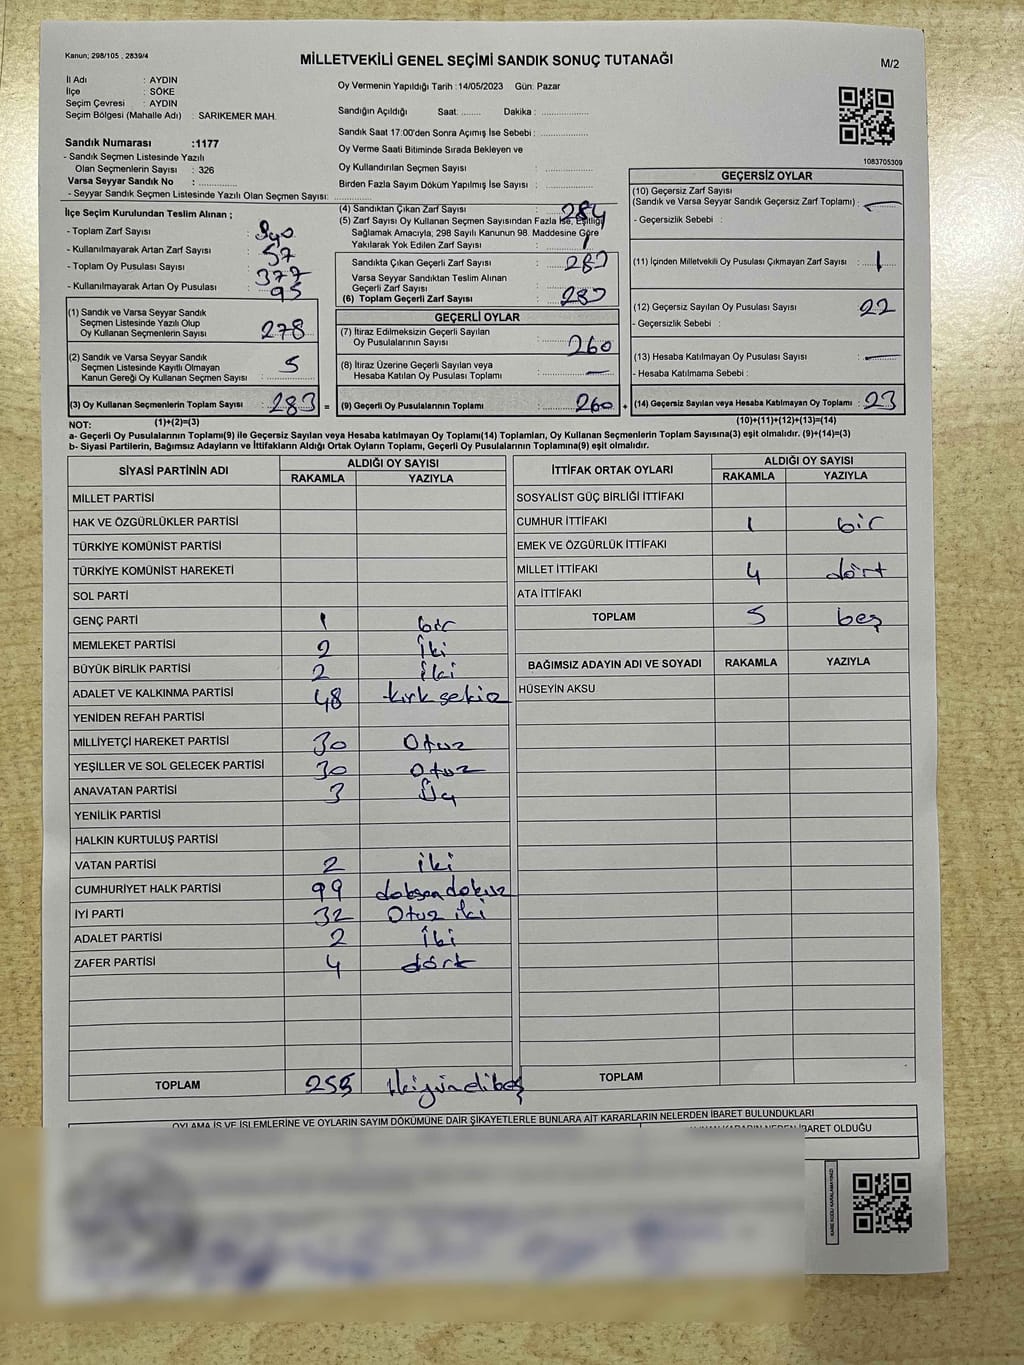 Kanun; 298/105 , 2839/4
MİLLETVEKİLİ GENEL SEÇİMİ SANDIK SONUÇ TUTANAĞI
M/2
İl Adı : AYDIN
İlçe : SÖKE
Seçim Çevresi : AYDIN
Seçim Bölgesi (Mahalle Adı) : SARIKEMER MAH.
Sandık Numarası :1177
- Sandık Seçmen Listesinde Yazılı
Olan Seçmenlerin Sayısı : 326
Varsa Seyyar Sandık No :
- Seyyar Sandık Seçmen Listesinde Yazılı Olan Seçmen Sayısı:
Oy Vermenin Yapıldığı Tarih :14/05/2023 Gün: Pazar
Sandığın Açıldığı Saat: ........ Dakika : ..................
Sandık Saat 17:00'den Sonra Açımış İse Sebebi : ..................
Oy Verme Saati Bitiminde Sırada Bekleyen ve
Oy Kullandırılan Seçmen Sayısı : ..................
Birden Fazla Sayım Döküm Yapılmış İse Sayısı : ..................
1083705309
İlçe Seçim Kurulundan Teslim Alınan ;
- Toplam Zarf Sayısı :
- Kullanılmayarak Artan Zarf Sayısı : 57
- Toplam Oy Pusulası Sayısı : 377
- Kullanılmayarak Artan Oy Pusulası : 95
(1) Sandık ve Varsa Seyyar Sandık
Seçmen Listesinde Yazılı Olup
Oy Kullanan Seçmenlerin Sayısı 278
(2) Sandık ve Varsa Seyyar Sandık
Seçmen Listesinde Kayıtlı Olmayan
Kanun Gereği Oy Kullanan Seçmen Sayısı 5
(3) Oy Kullanan Seçmenlerin Toplam Sayısı : 283 =
(1)+(2)=(3)
(4) Sandıktan Çıkan Zarf Sayısı : 284
(5) Zarf Sayısı Oy Kullanan Seçmen Sayısından Fazla İse, Eşitliği
Sağlamak Amacıyla, 298 Sayılı Kanunun 98. Maddesine Göre
Yakılarak Yok Edilen Zarf Sayısı : 1
Sandıkta Çıkan Geçerli Zarf Sayısı : 283
Varsa Seyyar Sandıktan Teslim Alınan
Geçerli Zarf Sayısı :
(6) Toplam Geçerli Zarf Sayısı : 283
GEÇERLİ OYLAR
(7) İtiraz Edilmeksizin Geçerli Sayılan
Oy Pusulalarının Sayısı : 260
(8) İtiraz Üzerine Geçerli Sayılan veya
Hesaba Katılan Oy Pusulası Toplamı : —
(9) Geçerli Oy Pusulalarının Toplamı : 260 +
GEÇERSİZ OYLAR
(10) Geçersiz Zarf Sayısı
(Sandık ve Varsa Seyyar Sandık Geçersiz Zarf Toplamı) : —
- Geçersizlik Sebebi :
(11) İçinden Milletvekili Oy Pusulası Çıkmayan Zarf Sayısı : 1
(12) Geçersiz Sayılan Oy Pusulası Sayısı : 22
- Geçersizlik Sebebi :
(13) Hesaba Katılmayan Oy Pusulası Sayısı : —
- Hesaba Katılmama Sebebi :
(14) Geçersiz Sayılan veya Hesaba Katılmayan Oy Toplamı : 23
(10)+(11)+(12)+(13)=(14)
NOT:
a- Geçerli Oy Pusulalarının Toplamı(9) ile Geçersiz Sayılan veya Hesaba katılmayan Oy Toplamı(14) Toplamları, Oy Kullanan Seçmenlerin Toplam Sayısına(3) eşit olmalıdır. (9)+(14)=(3)
b- Siyasi Partilerin, Bağımsız Adayların ve İttifakların Aldığı Ortak Oyların Toplamı, Geçerli Oy Pusulalarının Toplamına(9) eşit olmalıdır.
SİYASİ PARTİNİN ADI ALDIĞI OY SAYISI
RAKAMLA YAZIYLA
MİLLET PARTİSİ
HAK VE ÖZGÜRLÜKLER PARTİSİ
TÜRKİYE KOMÜNİST PARTİSİ
TÜRKİYE KOMÜNİST HAREKETİ
SOL PARTİ
GENÇ PARTİ 1 bir
MEMLEKET PARTİSİ 2 iki
BÜYÜK BİRLİK PARTİSİ 2 iki
ADALET VE KALKINMA PARTİSİ 48 kırk sekiz
YENİDEN REFAH PARTİSİ
MİLLİYETÇİ HAREKET PARTİSİ 30 Otuz
YEŞİLLER VE SOL GELECEK PARTİSİ 30 Otuz
ANAVATAN PARTİSİ 3 Üç
YENİLİK PARTİSİ
HALKIN KURTULUŞ PARTİSİ
VATAN PARTİSİ 2 iki
CUMHURİYET HALK PARTİSİ 99 doksan dokuz
İYİ PARTİ 32 Otuz iki
ADALET PARTİSİ 2 iki
ZAFER PARTİSİ 4 dört
TOPLAM 255 ikiyüzellibeş
İTTİFAK ORTAK OYLARI ALDIĞI OY SAYISI
RAKAMLA YAZIYLA
SOSYALİST GÜÇ BİRLİĞİ İTTİFAKI
CUMHUR İTTİFAKI 1 bir
EMEK VE ÖZGÜRLÜK İTTİFAKI
MİLLET İTTİFAKI 4 dört
ATA İTTİFAKI
TOPLAM 5 beş
BAĞIMSIZ ADAYIN ADI VE SOYADI RAKAMLA YAZIYLA
HÜSEYİN AKSU
TOPLAM
OYLAMA İŞ VE İŞLEMLERİNE VE OYLARIN SAYIM DÖKÜMÜNE DAİR ŞİKAYETLERLE BUNLARA AİT KARARLARIN NELERDEN İBARET BULUNDUKLARI
İBARET OLDUĞU
KARE KODU KARALAMAYINIZ!